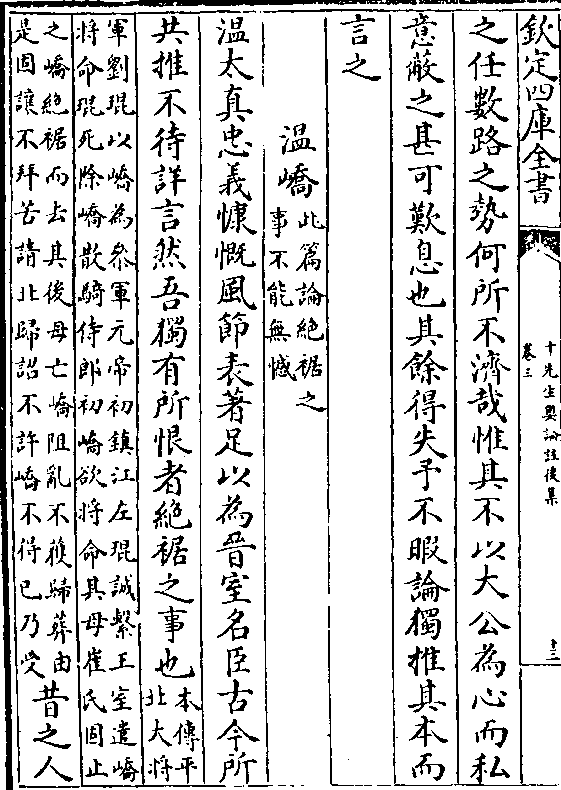 欽定四庫全書
十先生奧論註後集
卷三
十三
之任數路之勢何所不濟哉惟其不以大公為心而私
意蔽之甚可歎息也其餘得失予不暇論獨推其本而
言之
溫嶠此篇論絕裾之
事不能無憾
溫太真忠義慷慨風節表著足以為晉室名臣古今所
共推不待詳言然吾獨有所恨者絕裾之事也本傳平
北大將
軍劉琨以嶠為參軍元帝初鎮江左琨誠繫王室遣嶠
將命琨死除嶠散騎侍郎初嶠欲將命其母崔氏固止
之嶠絕裾而去其後母亡嶠阻亂不獲歸葬由
是固讓不拜苦請北歸詔不許嶠不得已乃受昔之人